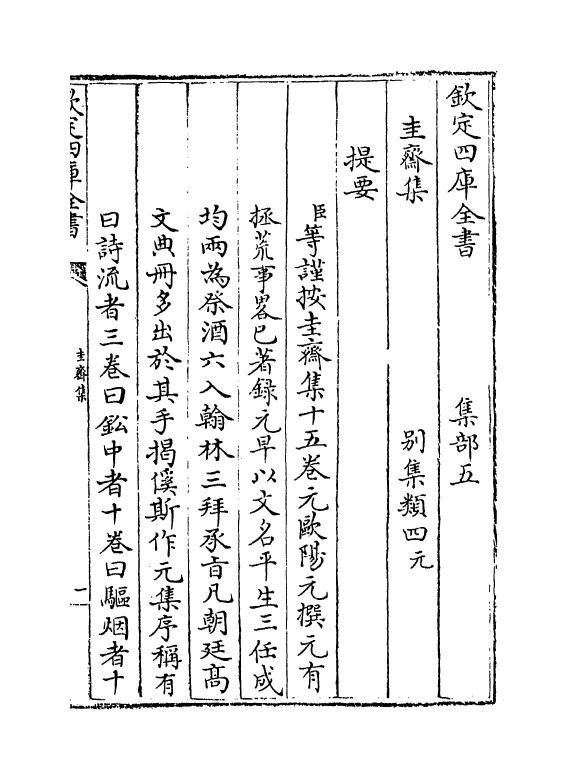 欽定四庫全書 集部五
圭齋集 别集類四元
提要
臣等謹按圭齋集十五卷元歐陽元撰元有
拯荒事畧已著録元早以文名平生三任成
均兩為祭酒六入翰林三拜承㫖凡朝廷髙
文典冊多出於其手揭傒斯作元集序稱有
曰詩流者三卷曰鈆中者十卷曰驅烟者十
欽定四庫全書
圭齋集
一